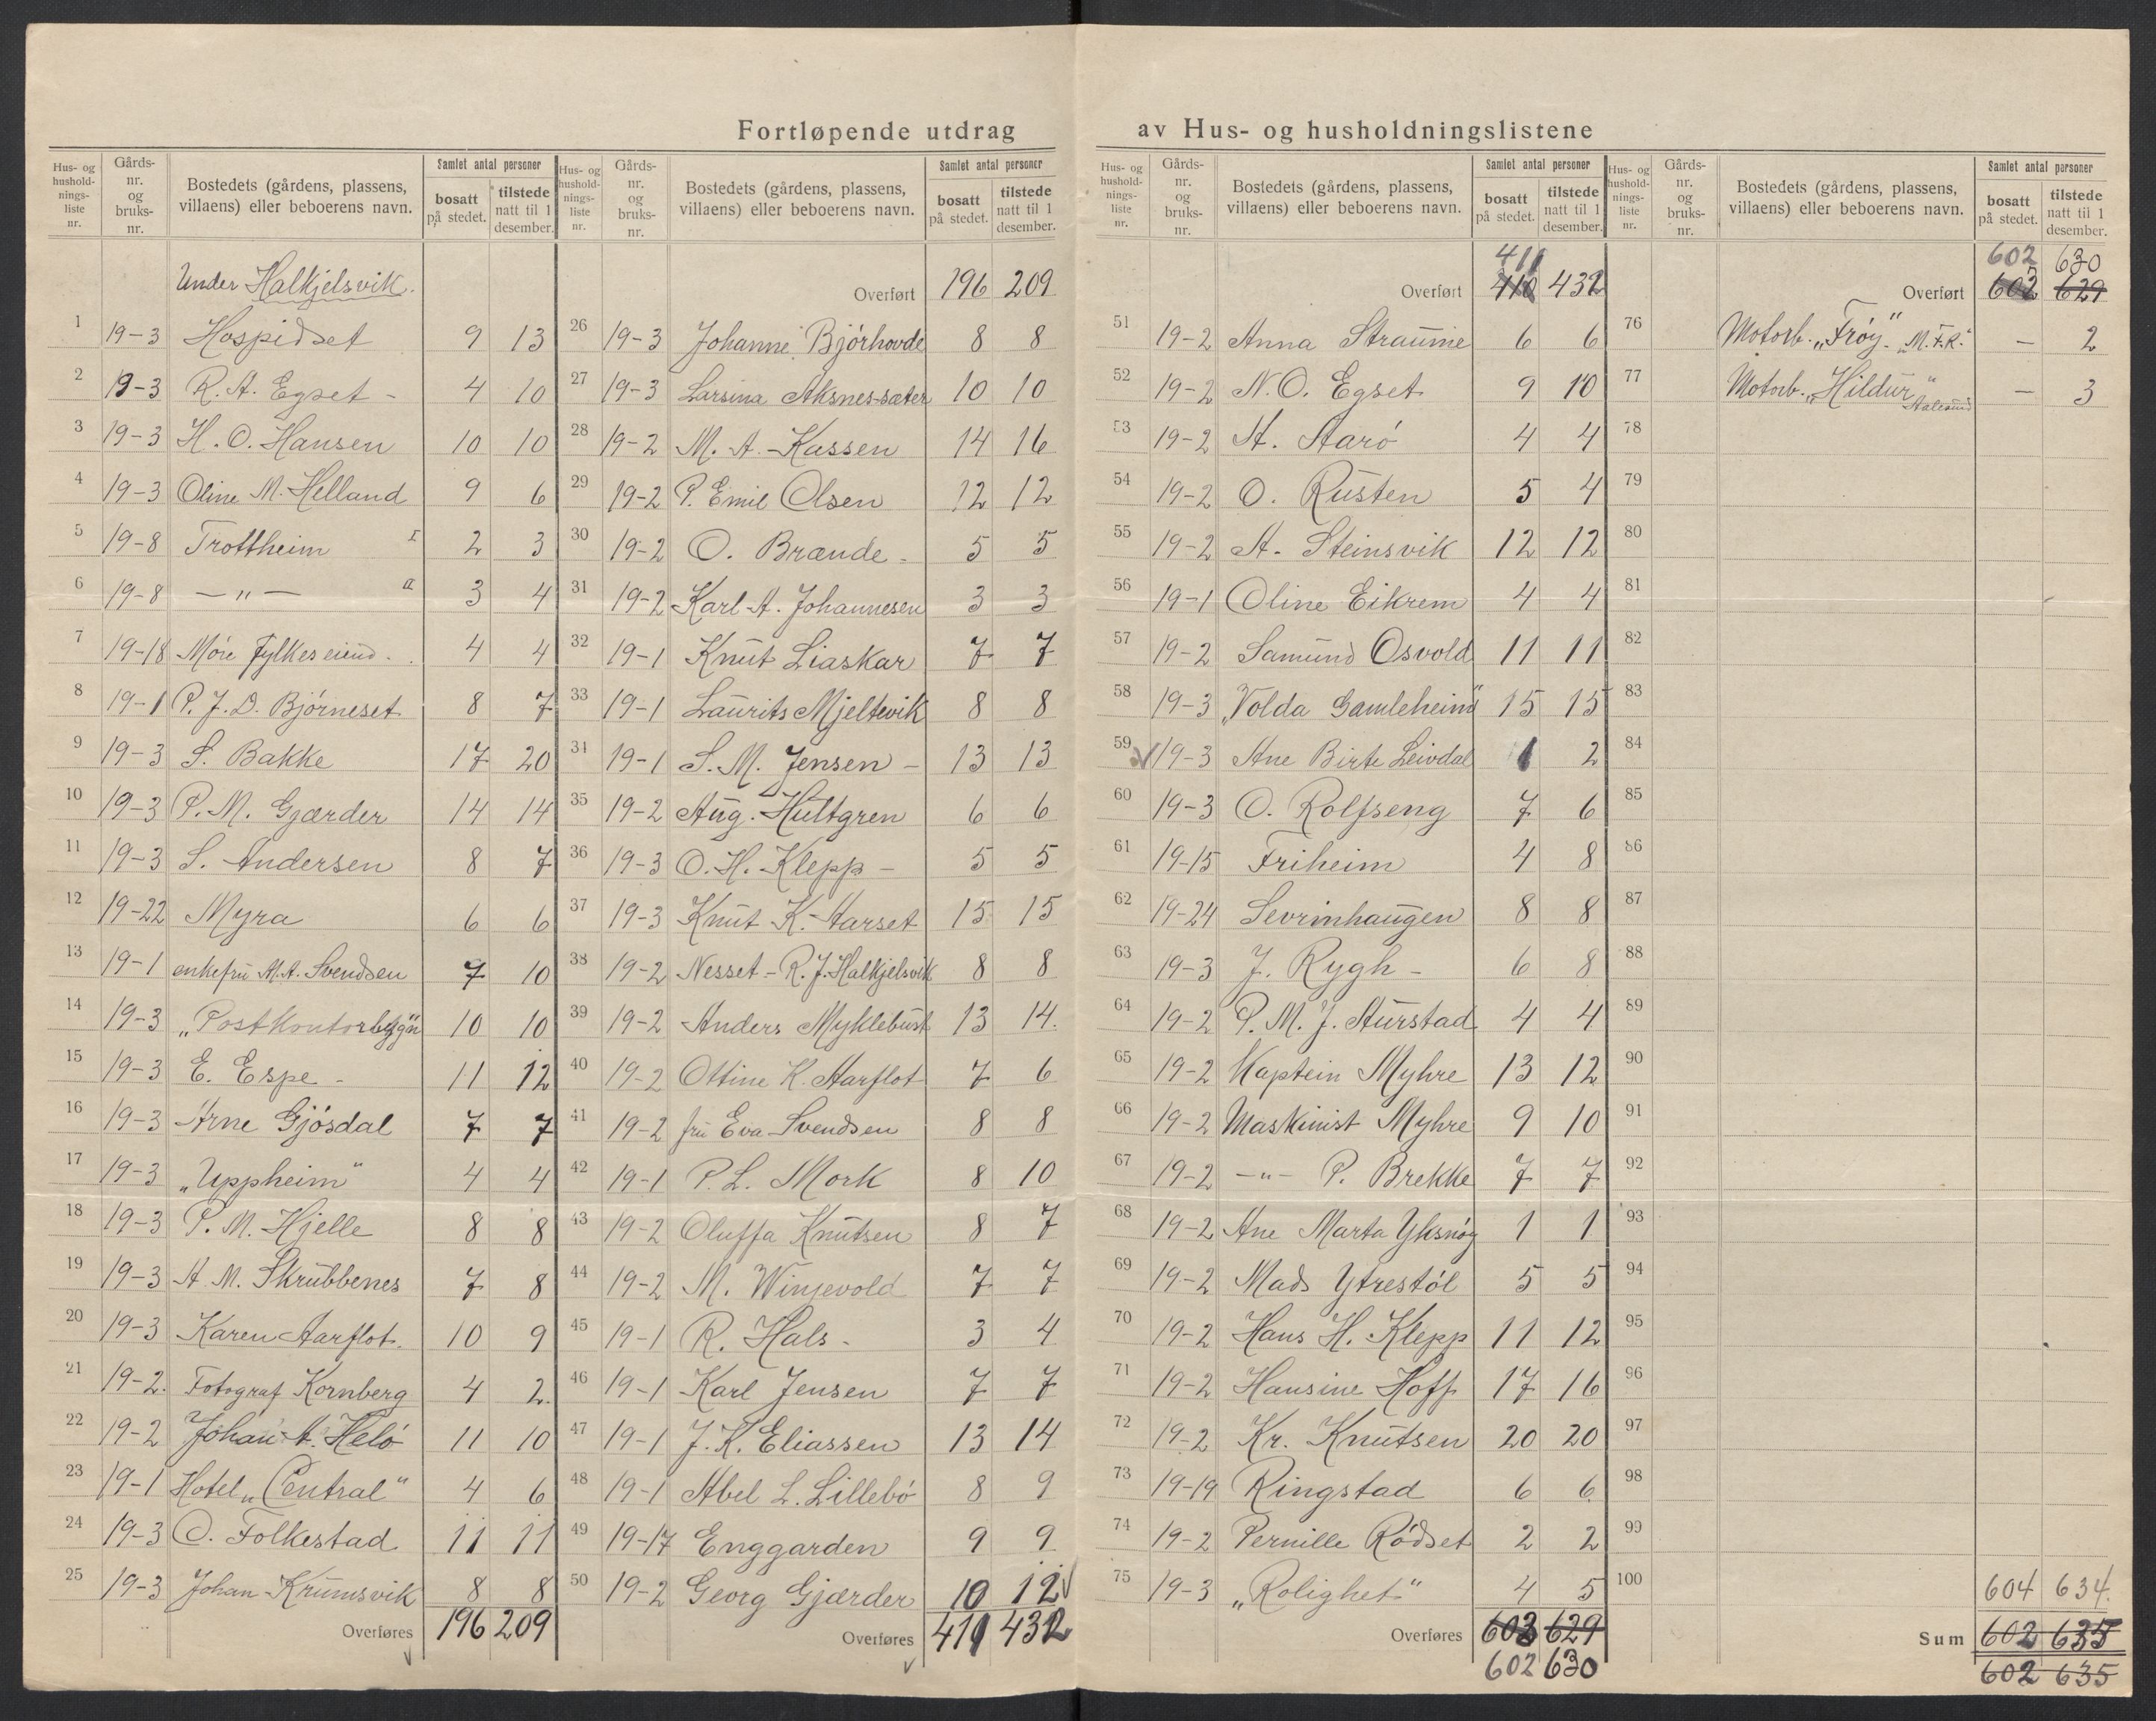 Fortløpende utdrag av Hus- og husholdningslistene
Hus- og husholdnings-liste nr. | Gårds-nr. og bruks-nr. | Bostedets (gårdens, plassens, villaens) eller beboerens navn. | Samlet antal personer bosatt på stedet. | tilstede natt til 1 desember.
Under Halkjelsvik.
1 19-3 Hospidset 9 13
2 19-3 R. A. Egset - 4 10
3 19-3 H. O. Hansen 10 10
4 19-3 Oline M. Helland 9 6
5 19-8 Trottheim I 2 3
6 19-8 — " — II 3 4
7 19-18 Møre fylkes eiend. 4 4
8 19-1 P. J. D. Bjørneset 8 7
9 19-3 S. Bakke 17 20
10 19-3 P. M. Gjærder 14 14
11 19-3 S. Andersen 8 7
12 19-22 Myra 6 6
13 19-1 enkefru M. A. Svendsen 7 10
14 19-3 10 10
15 19-3 E. Espe - 11 12
16 19-3 Arne Gjøsdal 7 7
17 19-3 „Uppheim" 4 4
18 19-3 P. M. Hjelle 8 8
19 19-3 A. M. Skrubbenes 7 8
20 19-3 Karen Aarflot. 10 9
21 19-2. Fotograf Kornberg 4 2
22 19-2 Johan A. Helø 11 10
23 19-1 Hotel „Central" 4 6
24 19-3 O. Folkestad 11 11
25 19-3 Johan Krumsvik 8 8
Overføres 196 209
Hus- og husholdnings-liste nr. | Gårds-nr. og bruks-nr. | Bostedets (gårdens, plassens, villaens) eller beboerens navn. | Samlet antal personer bosatt på stedet. | tilstede natt til 1 desember.
Overført 196 209
26 19-3 Johanne Bjørhovde 8 8
27 19-3 Larsina Aksnes-sæter 10 10
28 19-2 M. A. Kassen 14 16
29 19-2 P. Emil Olsen 12 12
30 19-2 O. Brande - 5 5
31 19-2 Karl A. Johannesen 3 3
32 19-1 Knut Liaskar 7 7
33 19-1 Laurits Mjeltevik 8 8
34 19-1 S. M. Jensen - 13 13
35 19-2 Aug. Hultgren 6 6
36 19-3 O. H. Klepp - 5 5
37 19-3 Knut K. Aarset 15 15
38 19-2 Nesset - R. J. Halkjelsvik 8 8
39 19-2 Anders Myklebust 13 14.
40 19-2 Ottine K. Aarflot 7 6
41 19-2 fru Eva Svendsen 8 8
42 19-1 P. L. Mork 8 10
43 19-2 Oluffa Knutsen 8 7
44 19-2 M. Winjevold 7 7
45 19-1 R. Hals - 3 4
46 19-1 Karl Jensen 7 7
47 19-1 J. K. Eliassen 13 14
48 19-1 Abel L. Lillebø 8 9
49 19-17 Enggarden 9 9
50 19-2 Georg Gjærder 10 12
Overføres 411 432
Hus- og husholdnings-liste nr. | Gårds-nr. og bruks-nr. | Bostedets (gårdens, plassens, villaens) eller beboerens navn. | Samlet antal personer bosatt på stedet. | tilstede natt til 1 desember.
411
Overført 410 432
51 19-2 Anna Straume 6 6
52 19-2 N. O. Egset 9 10
53 19-2 A. Aarø 4 4
54 19-2 O. Rusten 5 4
55 19-2 A. Steinsvik 12 12
56 19-1 Oline Eikrem 4 4
57 19-2 Samund Osvold 11 11
58 19-3 „Volda Gamleheim" 15 15
59 19-3 Ane Birte Leivdal 1 2
60 19-3 O. Rolfseng 7 6
61 19-15 Friheim 4 8
62 19-24 Sevrinhaugen 8 8
63 19-3 J. Rygh - 6 8
64 19-2 P. M. J. Aurstad 4 4
65 19-2 Kaptein Myhre 13 12
66 19-2 Maskinist Myhre 9 10
67 19-2 -"- P. Brekke 7 7
68 19-2 Ane Marta Yksnøy 1 1
69 19-2 Mads Ytrestøl 5 5
70 19-2 Hans H. Klepp 11 12
71 19-2 Hansine Hoff 17 16
72 19-2 Kr. Knutsen 20 20
73 19-19 Ringstad 6 6
74 19-2 Pernille Rødset 2 2
75 19-3 „Rolighet" 4 5
Overføres 603 629
602 630
Hus- og husholdnings-liste nr. | Gårds-nr. og bruks-nr. | Bostedets (gårdens, plassens, villaens) eller beboerens navn. | Samlet antal personer bosatt på stedet. | tilstede natt til 1 desember.
602 630
Overført 603 629
76 Motorb. „Frøy" „M.F.R." — 2
77 Motorb. „Hildur" Aalesund — 3
78
79
80
81
82
83
84
85
86
87
88
89
90
91
92
93
94
95
96
97
98
99
100
604 634.
Sum 602 635
602 635